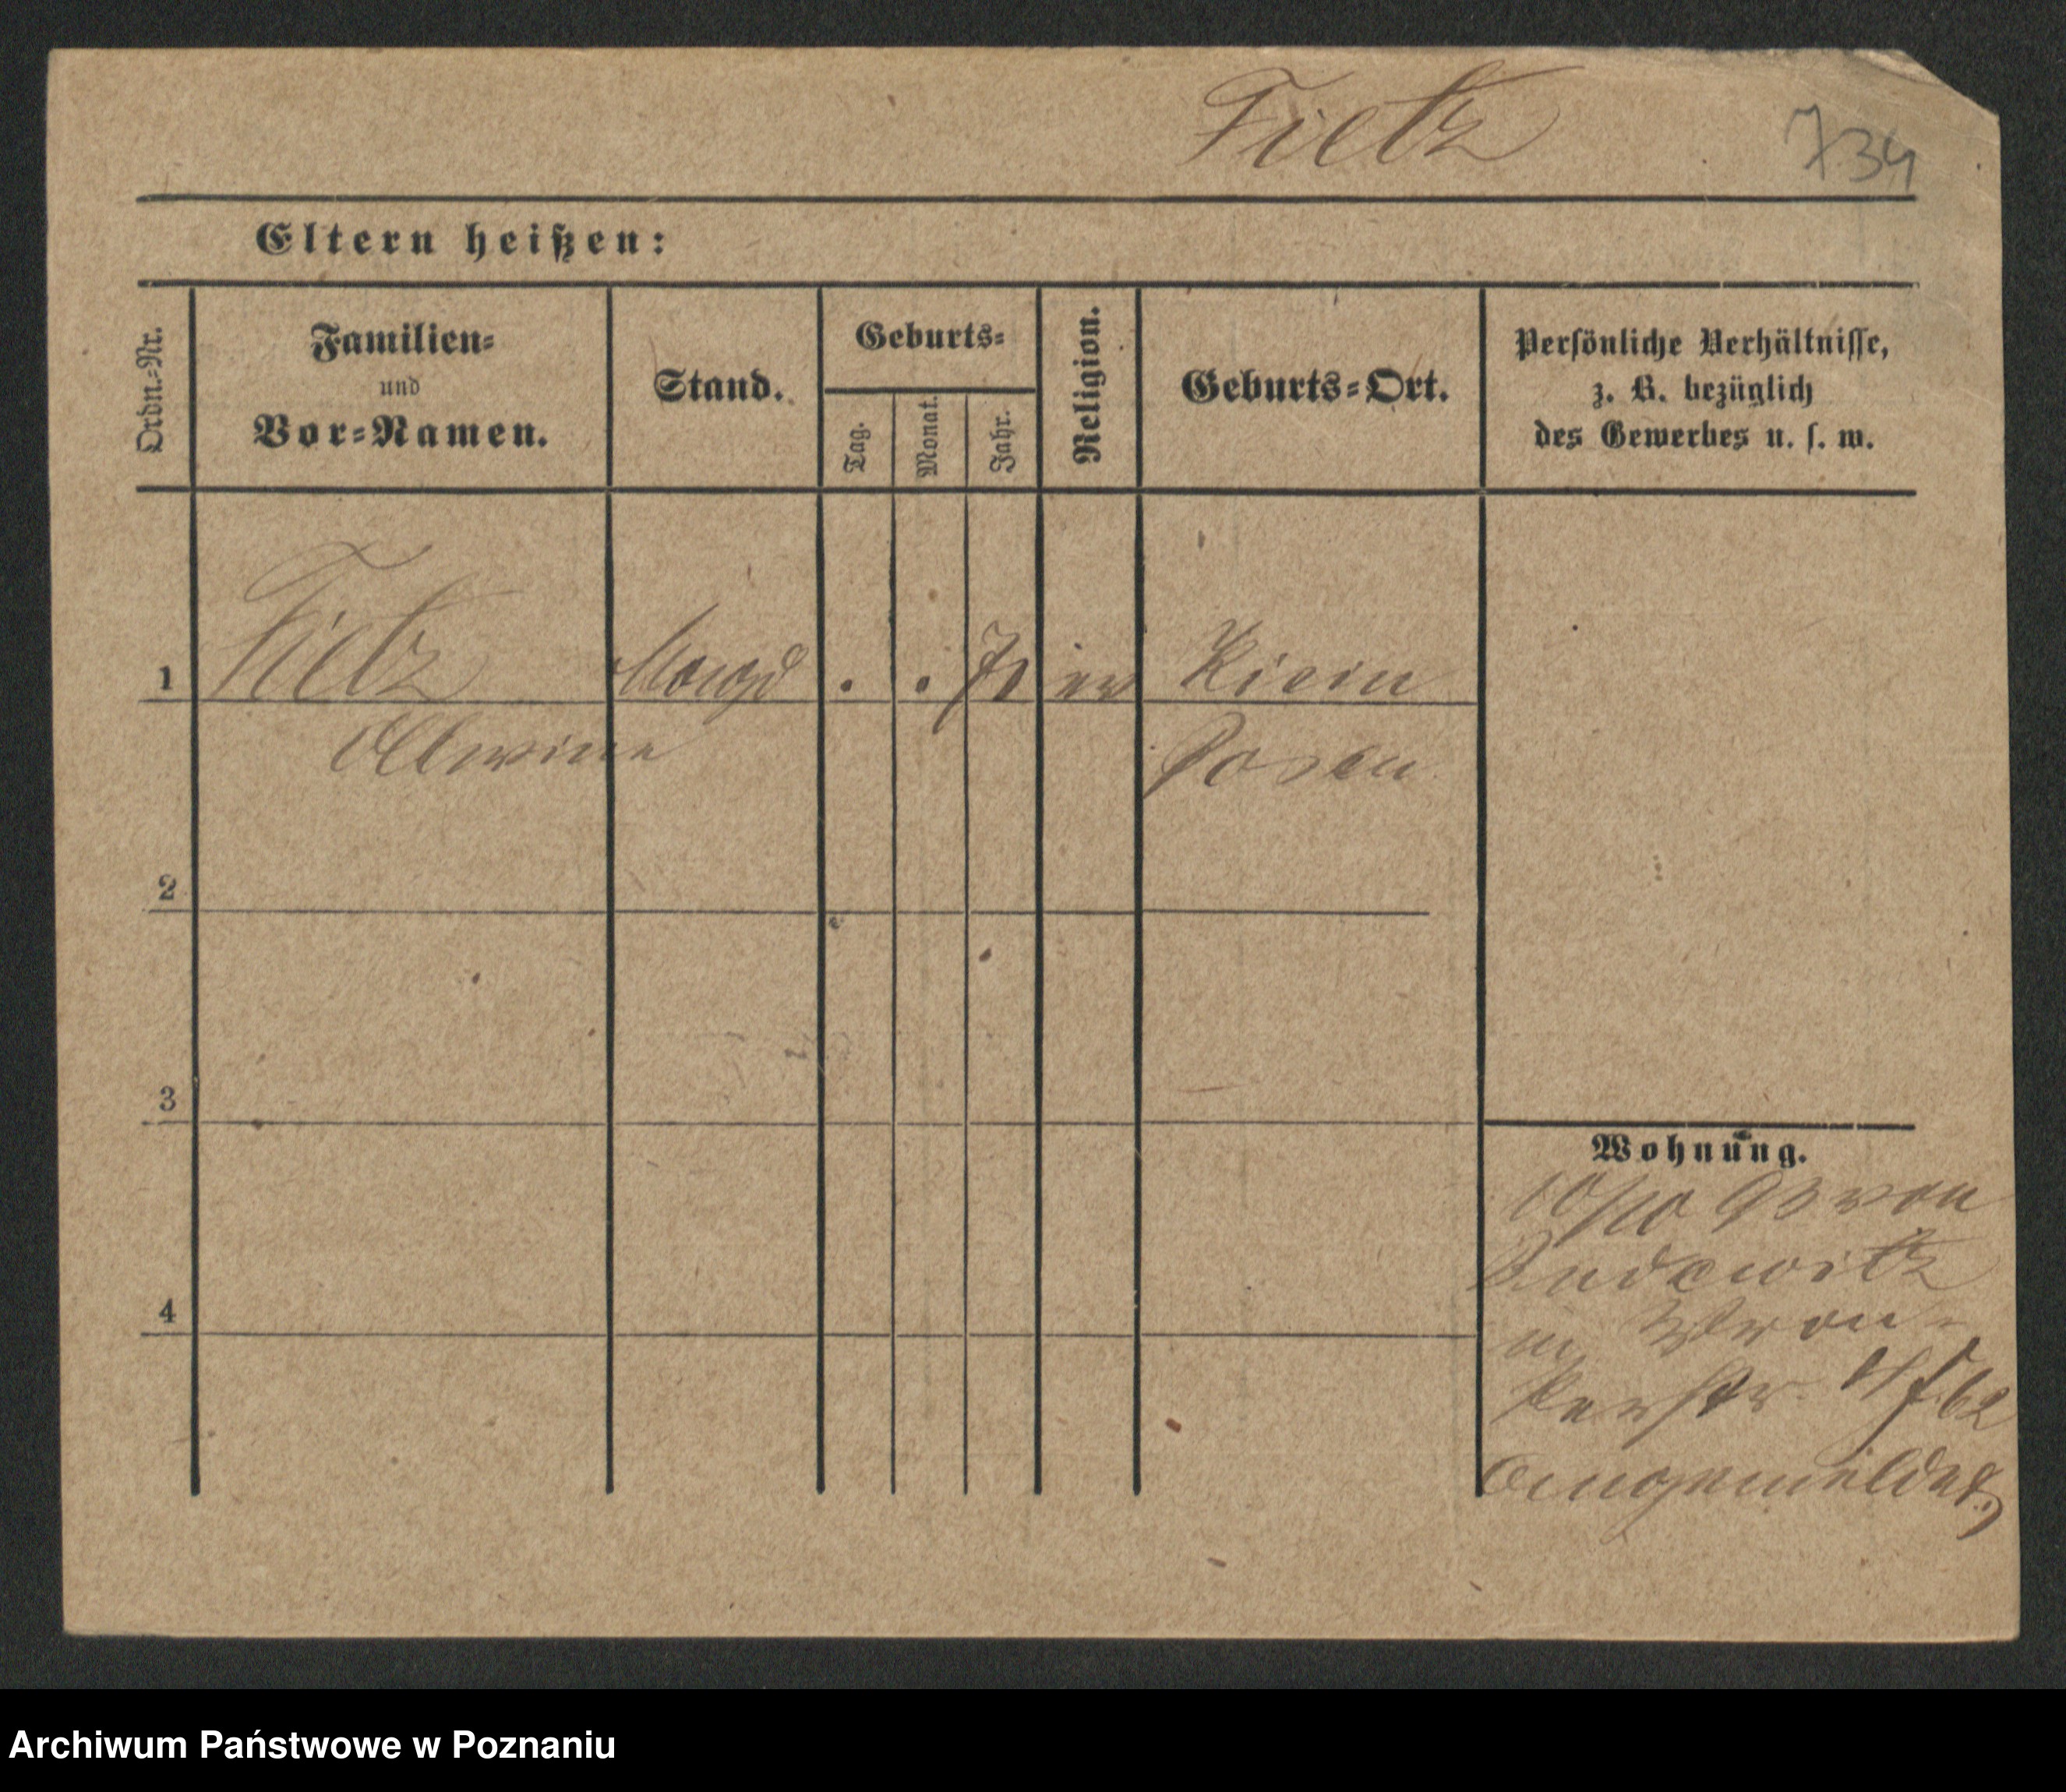 Fietz
734
Eltern heißen:
Ordn.-Nr.
Familien-
und
Vor-Namen.
Stand.
Geburts-
Tag.
Monat.
Jahr.
Religion.
Geburts-Ort.
Persönliche Verhältnisse,
z. B. bezüglich
des Gewerbes u. s. w.
1 Fietz Magd . . ev
Posen
2
3
4
Wohnung.
10/10 93 von
Rudewitz
in
62
Archiwum Państwowe w Poznaniu